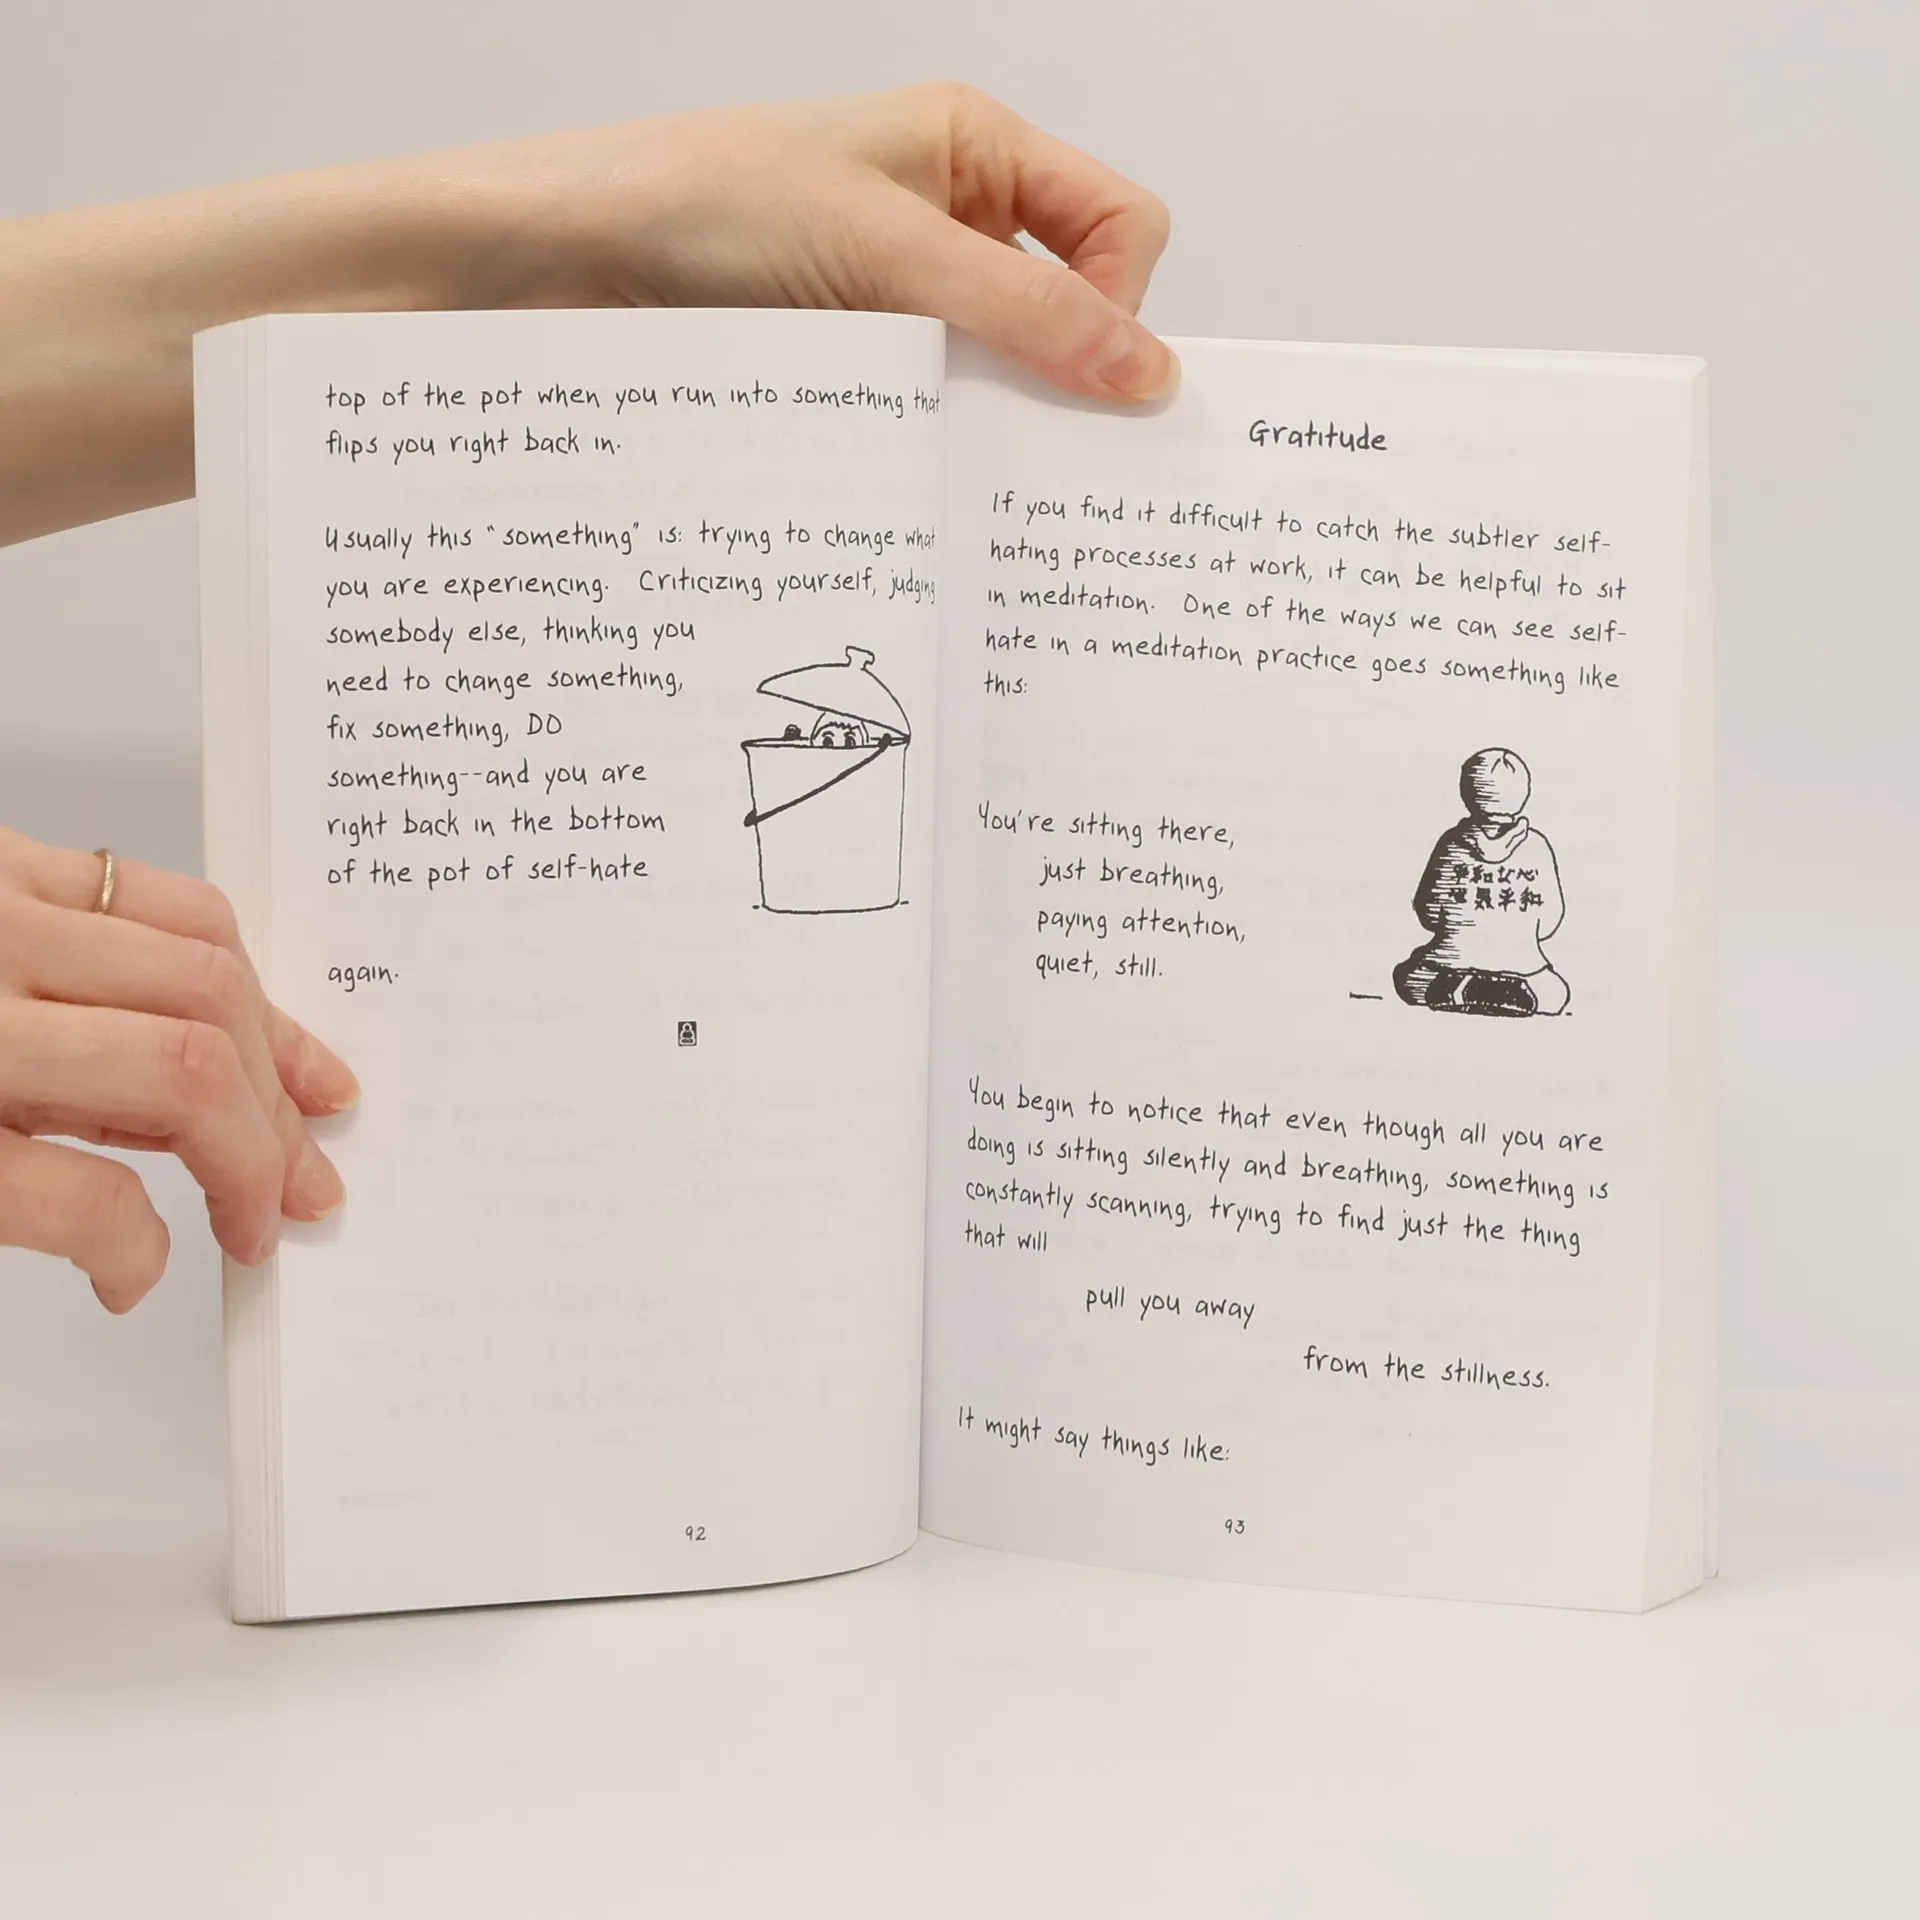 top of the pot when you run into something that
flips you right back in.
Usually this "something" is: trying to change what
you are experiencing. Criticizing yourself, judging
somebody else, thinking you
need to change something,
fix something, DO
something--and you are
right back in the bottom
of the pot of self-hate
again.
92
Gratitude
If you find it difficult to catch the subtler self-
hating processes at work, it can be helpful to sit
in meditation. One of the ways we can see self-
hate in a meditation practice goes something like
this:
You're sitting there,
just breathing,
paying attention,
quiet, still.
You begin to notice that even though all you are
doing is sitting silently and breathing, something is
constantly scanning, trying to find just the thing
that will
pull you away
from the stillness.
It might say things like:
93